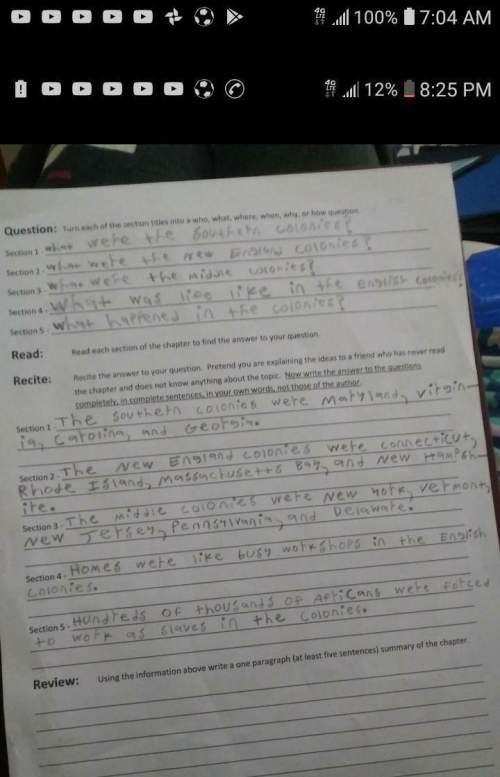 4G LTE 100% 7:04 AM
4G LTE 12% 8:25 PM
Question: Turn each of the section titles into a who, what, where, when, why, or how question.
Section 1 - What were the Southern colonies?
Section 2 - What were the New England colonies?
Section 3 - What were the Middle colonies?
Section 4 - What was life like in the English colonies?
Section 5 - What happened in the colonies?
Read: Read each section of the chapter to find the answer to your question.
Recite: Recite the answer to your question. Pretend you are explaining the ideas to a friend who has never read
the chapter and does not know anything about the topic. Now write the answer to the questions
completely, in complete sentences, in your own words, not those of the author.
Section 1 - The Southern colonies were Maryland, Virgin-
ia, Carolina, and Georgia.
Section 2 - The New England colonies were Connecticut,
Rhode Island, Massachusetts Bay, and New Hampsh-
ire.
Section 3 - The Middle colonies were New York, Vermont,
New Jersey, Pennsylvania, and Delaware.
Section 4 - Homes were like busy workshops in the English
colonies.
Section 5 - Hundreds of thousands of Africans were forced
to work as slaves in the colonies.
Review: Using the information above write a one paragraph (at least five sentences) summary of the chapter.